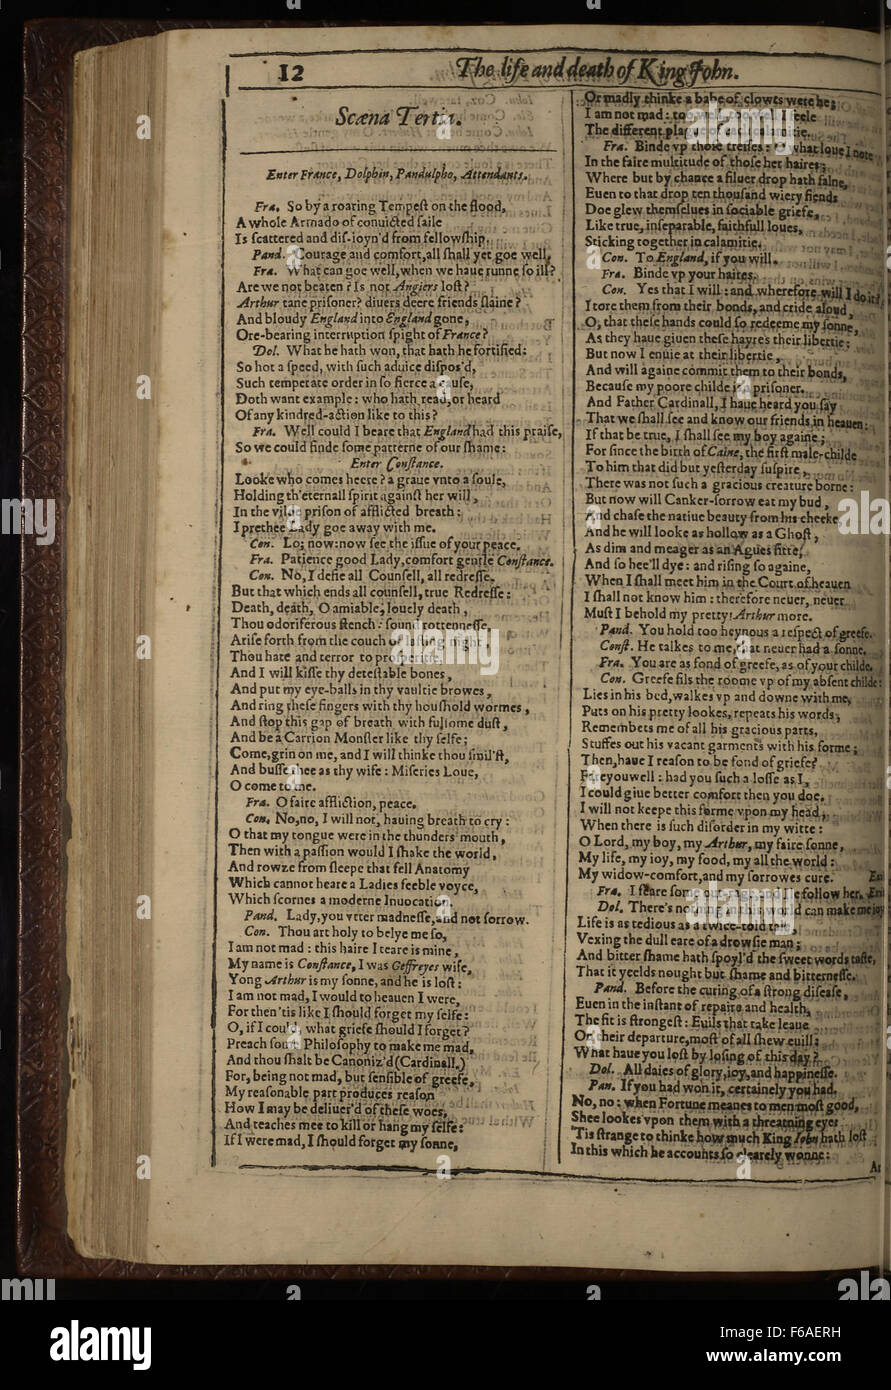 12
The life and death of King John.
Scæna Tertia.
Enter France, Dolphin, Pandulpho, Attendants.
Fra. So by a roaring Tempeſt on the flood,
A whole Armado of conuicted ſaile
Is ſcattered and diſ-ioyn'd from fellowſhip.
Pand. Courage and comfort, all ſhall yet goe well.
Fra. What can goe well, when we haue runne ſo ill?
Are we not beaten? Is not Angiers loſt?
Arthur tane priſoner? diuers deere friends ſlaine?
And bloudy England into England gone,
Ore-bearing interruption ſpight of France?
Dol. What he hath won, that hath he fortified:
So hot a ſpeed, with ſuch aduice diſpos'd,
Such temperate order in ſo fierce a cauſe,
Doth want example: who hath read, or heard
Of any kindred-action like to this?
Fra. Well could I beare that England had this praiſe,
So we could finde ſome patterne of our ſhame:
Enter Conſtance.
Looke who comes heere? a graue vnto a ſoule,
Holding th'eternall ſpirit againſt her will,
In the vilde priſon of afflicted breath:
I prethee Lady goe away with me.
Con. Lo; now: now ſee the iſſue of your peace.
Fra. Patience good Lady, comfort gentle Conſtance.
Con. No, I defie all Counſell, all redreſſe,
But that which ends all counſell, true Redreſſe:
Death, death, O amiable, louely death,
Thou odoriferous ſtench: ſound rottenneſſe,
Ariſe forth from the couch of laſting night,
Thou hate and terror to proſperitie,
And I will kiſſe thy deteſtable bones,
And put my eye-balls in thy vaultie browes,
And ring theſe fingers with thy houſhold wormes,
And ſtop this gap of breath with fulſome duſt,
And be a Carrion Monſter like thy ſelfe;
Come, grin on me, and I will thinke thou ſmil'ſt,
And buſſe thee as thy wife: Miſeries Loue,
O come to me.
Fra. O faire affliction, peace.
Con. No, no, I will not, hauing breath to cry:
O that my tongue were in the thunders mouth,
Then with a paſſion would I ſhake the world,
And rowze from ſleepe that fell Anatomy
Which cannot heare a Ladies feeble voyce,
Which ſcornes a moderne Inuocation.
Pand. Lady, you vtter madneſſe, and not ſorrow.
Con. Thou art holy to belye me ſo,
I am not mad: this haire I teare is mine,
My name is Conſtance, I was Geffreyes wife,
Yong Arthur is my ſonne, and he is loſt:
I am not mad, I would to heauen I were,
For then 'tis like I ſhould forget my ſelfe:
O, if I could, what griefe ſhould I forget?
Preach ſome Philoſophy to make me mad,
And thou ſhalt be Canoniz'd (Cardinall.)
For, being not mad, but ſenſible of greefe,
My reaſonable part produces reaſon
How I may be deliuer'd of theſe woes,
And teaches mee to kill or hang my ſelfe:
If I were mad, I ſhould forget my ſonne,
Or madly thinke a babe of clowts were he;
I am not mad: too well, too well I feele
The different plague of each calamitie.
Fra. Binde vp thoſe treſſes: O what loue I note
In the faire multitude of thoſe her haires;
Where but by chance a ſiluer drop hath falne,
Euen to that drop ten thouſand wiery fiends
Doe glew themſelues in ſociable griefe,
Like true, inſeparable, faithfull loues,
Sticking together in calamitie.
Con. To England, if you will.
Fra. Binde vp your haires.
Con. Yes that I will: and wherefore will I do it?
I tore them from their bonds, and cride aloud,
O, that theſe hands could ſo redeeme my ſonne,
As they haue giuen theſe hayres their libertie:
But now I enuie at their libertie,
And will againe commit them to their bonds,
Becauſe my poore childe is a priſoner.
And Father Cardinall, I haue heard you ſay
That we ſhall ſee and know our friends in heauen:
If that be true, I ſhall ſee my boy againe;
For ſince the birth of Caine, the firſt male-childe
To him that did but yeſterday ſuſpire,
There was not ſuch a gracious creature borne:
But now will Canker-ſorrow eat my bud,
And chaſe the natiue beauty from his cheeke,
And he will looke as hollow as a Ghoſt,
As dim and meager as an Agues fitte,
And ſo hee'll dye: and riſing ſo againe,
When I ſhall meet him in the Court of heauen
I ſhall not know him: therefore neuer, neuer
Muſt I behold my pretty Arthur more.
Pand. You hold too heynous a reſpect of greefe.
Conſt. He talkes to me, that neuer had a ſonne.
Fra. You are as fond of greefe, as of your childe.
Con. Greefe fils the roome vp of my abſent childe:
Lies in his bed, walkes vp and downe with me,
Puts on his pretty lookes, repeats his words,
Remembets me of all his gracious parts,
Stuffes out his vacant garments with his forme;
Then, haue I reaſon to be fond of griefe?
Fareyouwell: had you ſuch a loſſe as I,
I could giue better comfort then you doe.
I will not keepe this forme vpon my head,
When there is ſuch diſorder in my witte:
O Lord, my boy, my Arthur, my faire ſonne,
My life, my ioy, my food, my all the world:
My widow-comfort, and my ſorrowes cure. Exi
Fra. I feare ſome out-rage, and Ile follow her. Exi
Dol. There's nothing in this world can make me ioy
Life is as tedious as a twice-told tale,
Vexing the dull eare of a drowſie man;
And bitter ſhame hath ſpoyl'd the ſweet words taſte,
That it yeelds nought but ſhame and bitterneſſe.
Pand. Before the curing of a ſtrong diſeaſe,
Euen in the inſtant of repaire and health,
The fit is ſtrongeſt: Euils that take leaue
On their departure, moſt of all ſhew euill:
What haue you loſt by loſing of this day?
Dol. All daies of glory, ioy, and happineſſe.
Pan. If you had won it, certainely you had.
No, no: when Fortune meanes to men moſt good,
Shee lookes vpon them with a threatning eye:
'Tis ſtrange to thinke how much King Iohn hath loſt
In this which he accounts ſo clearely wonne:
Ar
alamy
Image ID: F6AERH
www.alamy.com